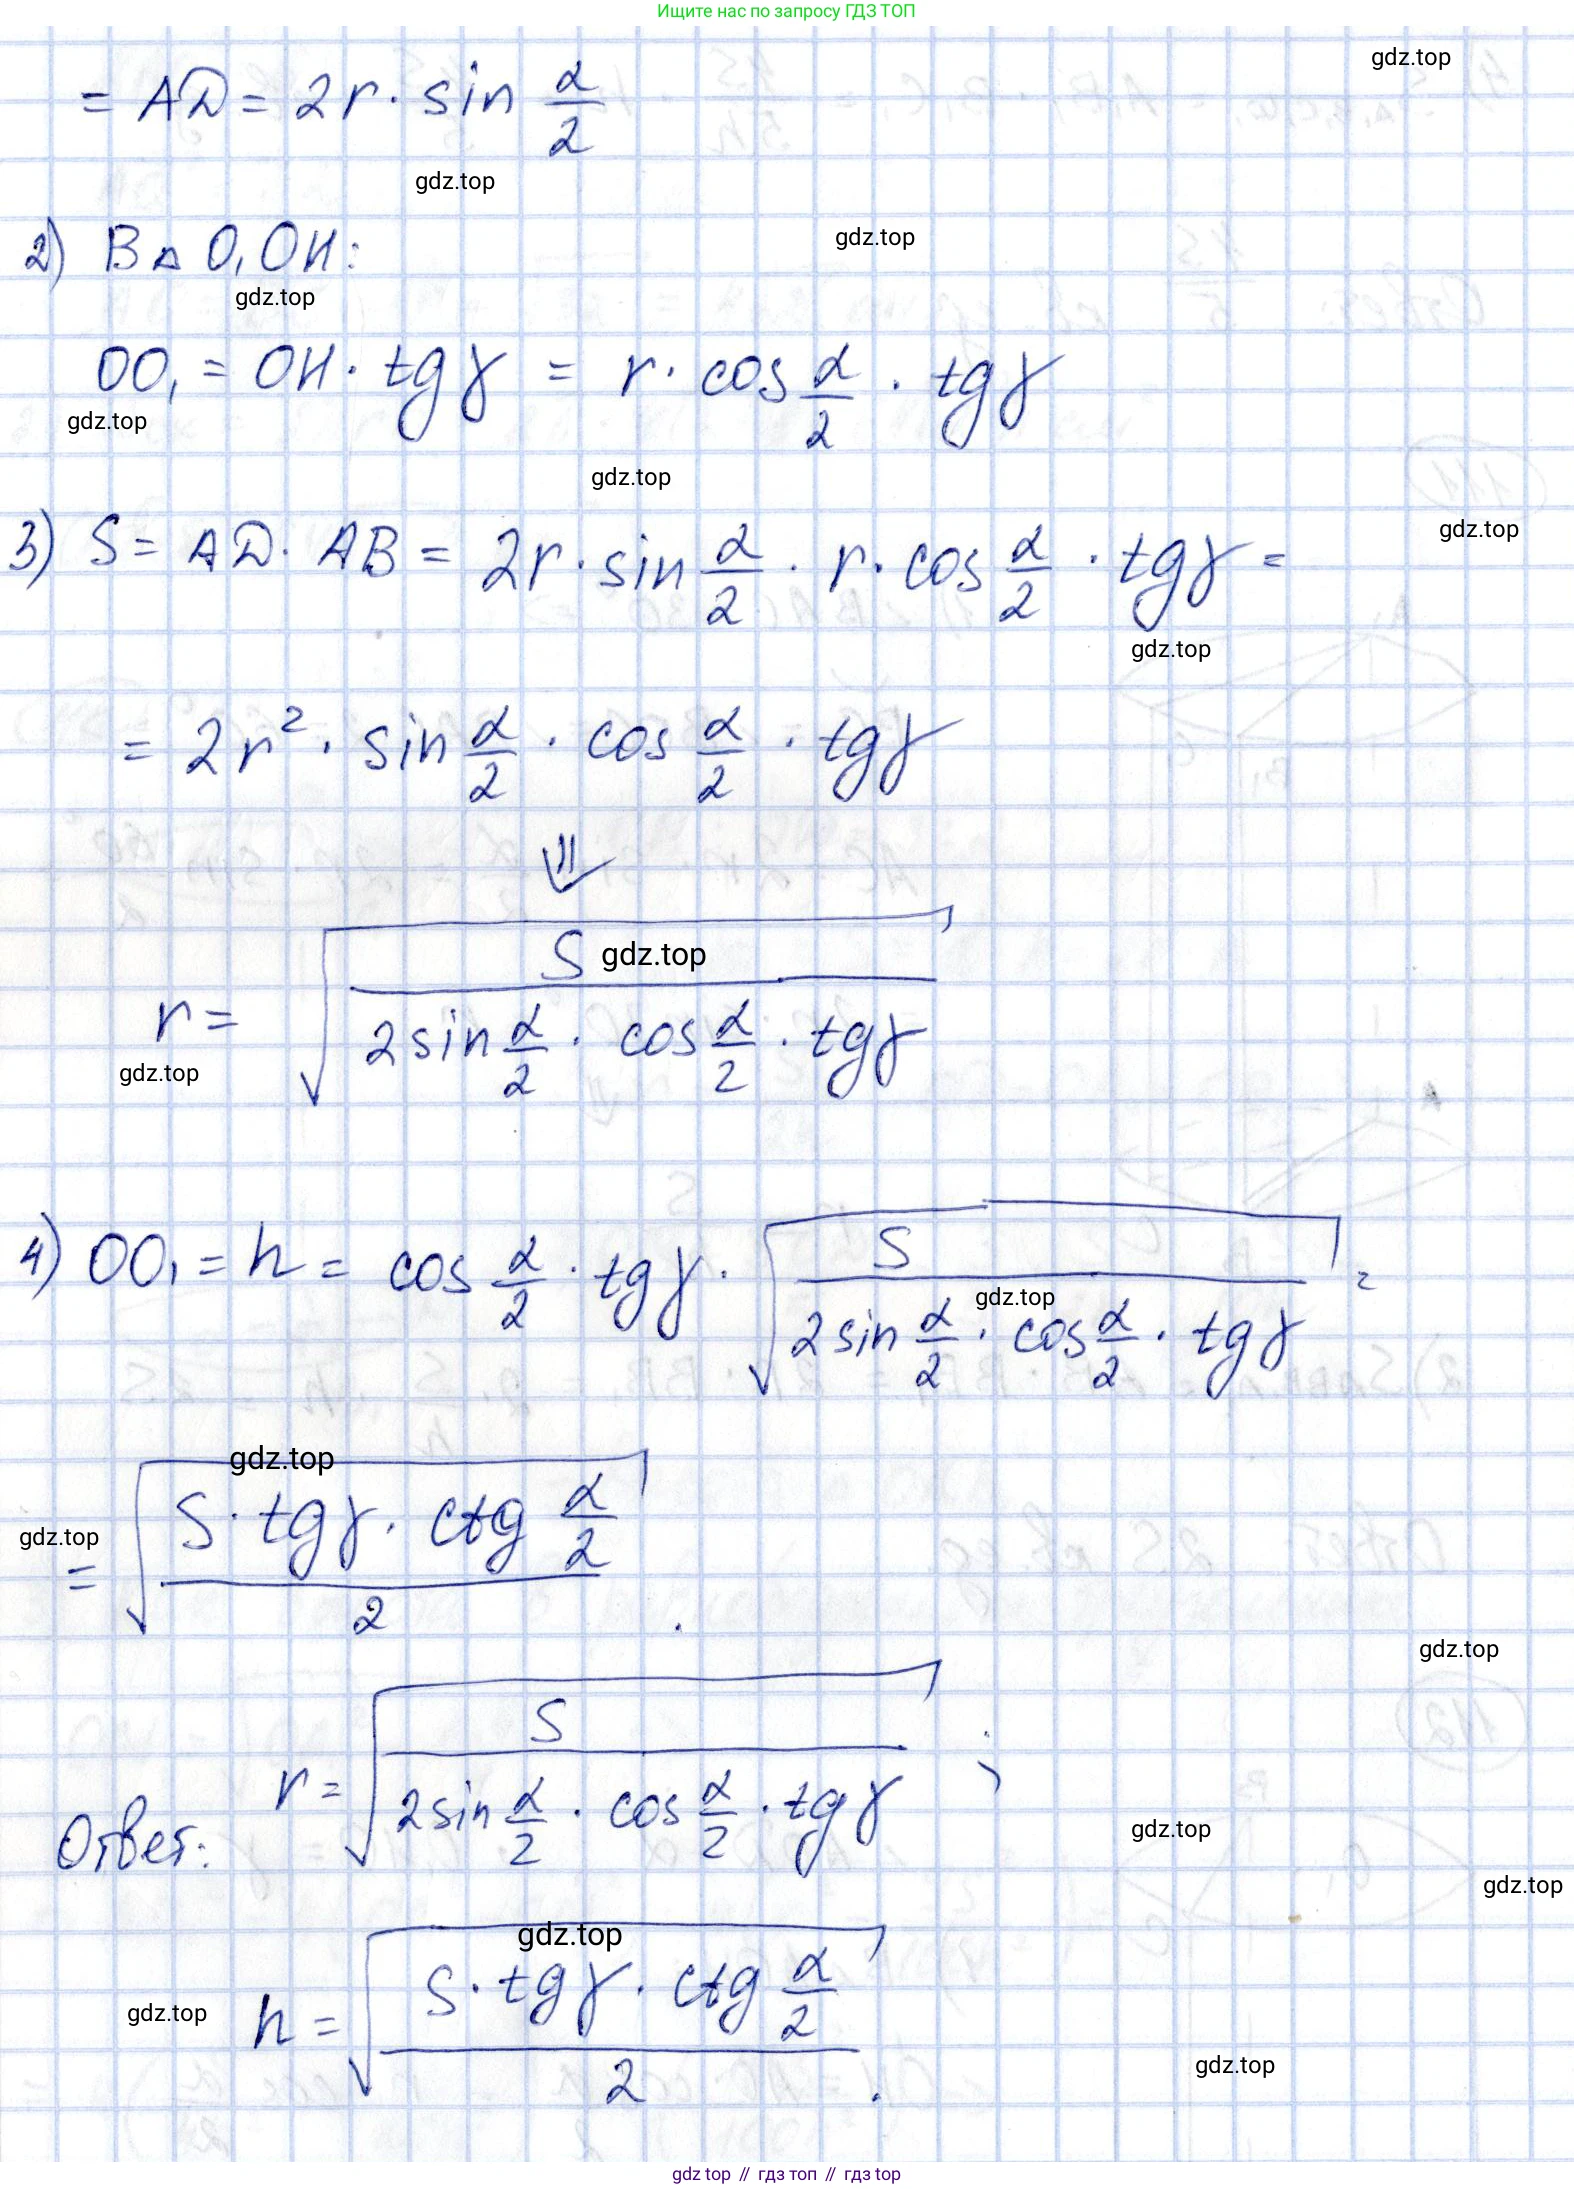 Ищите нас по запросу ГДЗ ТОП
gdz.top
= AD = 2r · sin α/2
gdz.top
2) В △ O₁OH:
gdz.top
gdz.top
OO₁ = OH · tgγ = r · cos α/2 · tgγ
gdz.top
gdz.top
3) S = AD · AB = 2r · sin α/2 · r · cos α/2 · tgγ =
gdz.top
gdz.top
= 2r² · sin α/2 · cos α/2 · tgγ
⇓
r = √(S / (2sin α/2 · cos α/2 · tgγ))
gdz.top
gdz.top
4) OO₁ = h = cos α/2 · tgγ · √(S / (2sin α/2 · cos α/2 · tgγ)) =
gdz.top
gdz.top
gdz.top
= √((S · tgγ · ctg α/2) / 2) .
gdz.top
Ответ: r = √(S / (2sin α/2 · cos α/2 · tgγ)) ;
gdz.top
gdz.top
gdz.top
gdz.top
h = √((S · tgγ · ctg α/2) / 2) .
gdz.top
gdz top // гдз топ // гдз top